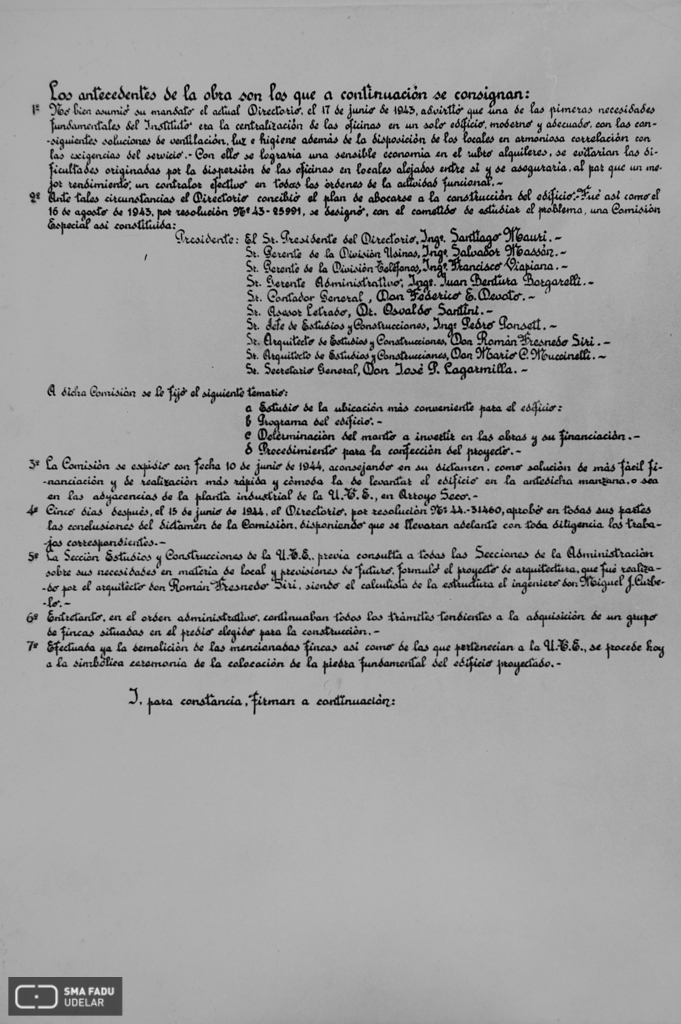 Los antecedentes de la obra son los que a continuación se consignan:
1º No bien asumió su mandato el actual Directorio, el 17 de junio de 1943, advirtió que una de las pimeras necesidades
fundamentales del Instituto era la centralización de las oficinas en un solo edificio, moderno y adecuado, con las con-
siguientes soluciones de ventilación, luz e higiene además de la disposición de los locales en armoniosa correlación con
las exigencias del servicio.- Con ello se lograría una sensible economía en el rubro alquileres, se evitarían las di-
ficultades originadas por la dispersión de las oficinas en locales alejados entre sí y se aseguraría, al par que un me-
jor rendimiento, un contralor efectivo en todos los órdenes de la actividad funcional.-
2º Ante tales circunstancias el Directorio concibió el plan de abocarse a la construcción del edificio.- Fué así como el
16 de agosto de 1943, por resolución Nº 43-25991, se designó, con el cometido de estudiar el problema, una Comisión
Especial así constituída:
Presidente: El Sr. Presidente del Directorio, Ingº Santiago Mauri.-
Sr. Gerente de la División Usinas, Ingº Salvador Massón.-
Sr. Gerente de la División Teléfonos, Ingº Francisco Viapiana.-
Sr. Gerente Administrativo, Ingº Juan Bentura Borgarelli.-
Sr. Contador General, Don Federico E. Devoto.-
Sr. Asesor Letrado, Dr. Osvaldo Santini.-
Sr. Jefe de Estudios y Construcciones, Ingº Pedro Ponsett.-
Sr. Arquitecto de Estudios y Construcciones, Don Román Fresnedo Siri.-
Sr. Arquitecto de Estudios y Construcciones, Don Mario C. Muccinelli.-
Sr. Secretario General, Don José P. Lagarmilla.-
A dicha Comisión se le fijó el siguiente temario:
a Estudio de la ubicación más conveniente para el edificio:
b Programa del edificio.-
c Determinación del monto a invertir en las obras y su financiación.-
d Procedimiento para la confección del proyecto.-
3º La Comisión se expidio con fecha 10 de junio de 1944, aconsejando en su dictamen, como solución de más fácil fi-
nanciación y de realización más rápida y cómoda la de levantar el edificio en la antedicha manzana, o sea
en las adyacencias de la planta industrial de la U.T.E., en Arroyo Seco.-
4º Cinco días después, el 15 de junio de 1944, el Directorio, por resolución Nº 44.-31460, aprobó en todas sus partes
las conclusiones del dictamen de la Comisión, disponiendo que se llevaran adelante con toda diligencia los traba-
jos correspondientes.-
5º La Sección Estudios y Construcciones de la U.T.E., previa consulta a todas las Secciones de la Administración
sobre sus necesidades en materia de local y previsiones de futuro, formuló el proyecto de arquitectura, que fué realiza-
do por el arquitecto don Román Fresnedo Siri, siendo el calculista de la estructura el ingeniero don Miguel J. Curbe-
lo.-
6º Entretanto, en el orden administrativo, continuaban todos los trámites tendientes a la adquisición de un grupo
de fincas situadas en el predio elegido para la construcción.-
7º Efectuada ya la demolición de las mencionadas fincas así como de las que pertenecian a la U.T.E., se procede hoy
a la simbólica ceremonia de la colocación de la piedra fundamental del edificio proyectado.-
I, para constancia, firman a continuación:
SMA FADU
UDELAR